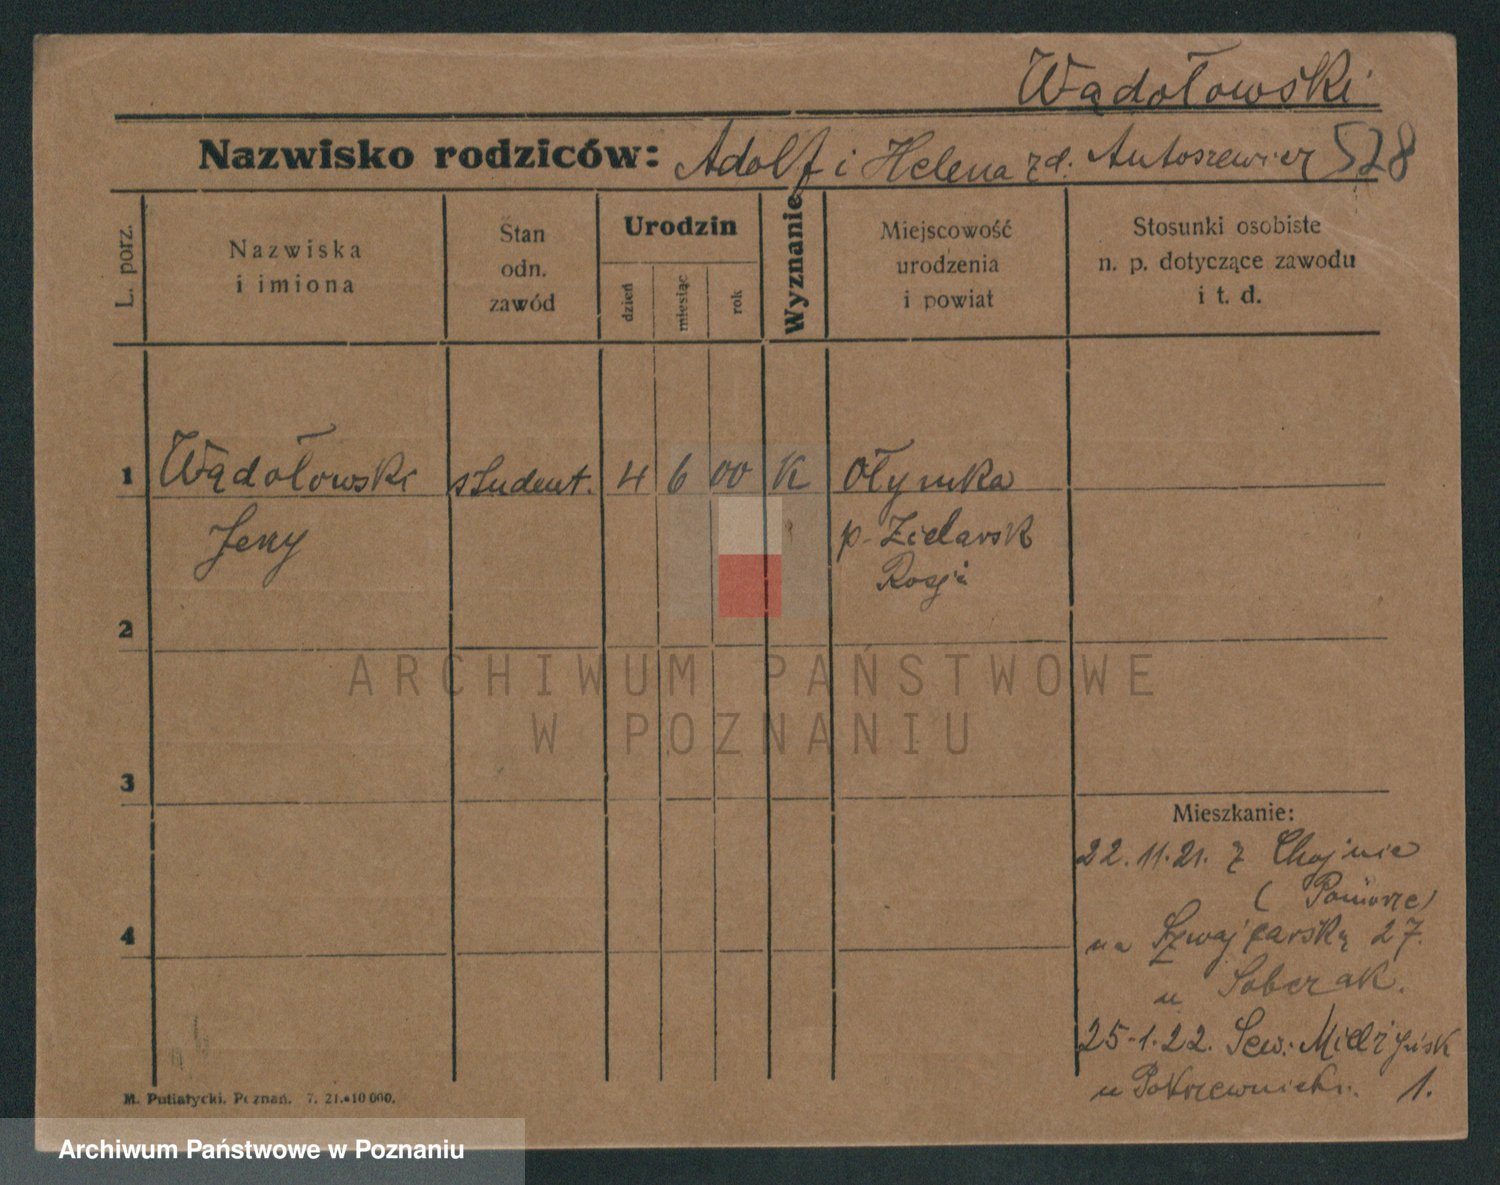 Wądołowski
Nazwisko rodziców: Adolf i Helena zd. Antoszewicz 528
L. porz.
Nazwiska
i imiona
Stan
odn.
zawód
Urodzin
dzień
miesiąc
rok
Wyznanie
Miejscowość
urodzenia
i powiat
Stosunki osobiste
n. p. dotyczące zawodu
i t. d.
1 Wądołowski student. 4 6 00 K Ołymka
Jerzy p. Zielarsk
Rosji
2
3
4
Mieszkanie:
22.11.21. z Chojnic
(Pomorze)
na Szwajcarską 27.
u Sobczak.
25.1.22. Sew. Mielżyńsk
u 1.
M. Putiatycki, Poznań. 7. 21. 10 000.
ARCHIWUM PAŃSTWOWE
W POZNANIU
Archiwum Państwowe w Poznaniu